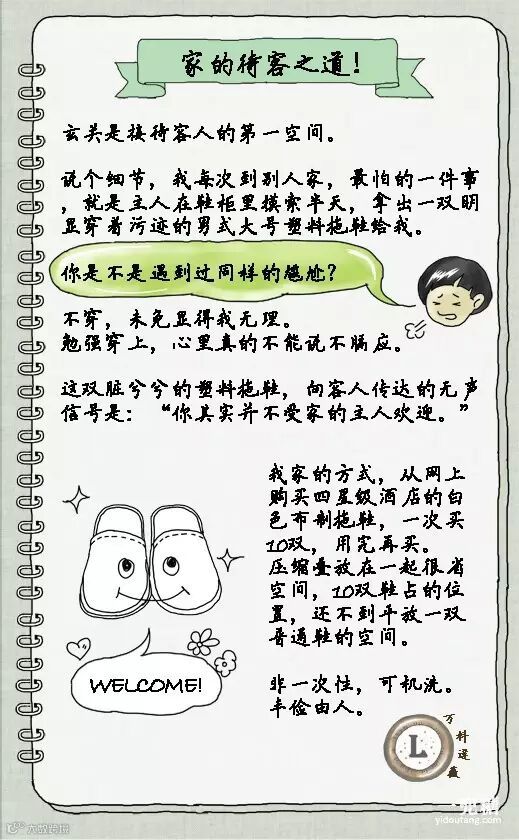 家的待客之道！
玄关是接待客人的第一空间。
说个细节，我每次到别人家，最怕的一件事
，就是主人在鞋柜里摸索半天，拿出一双明
显穿着污迹的男式大号塑料拖鞋给我。
你是不是遇到过同样的尴尬？
不穿，未免显得我无理。
勉强穿上，心里真的不能说不膈应。
这双脏兮兮的塑料拖鞋，向客人传达的无声
信号是：“你其实并不受家的主人欢迎。”
我家的方式，从网上
购买四星级酒店的白
色布制拖鞋，一次买
10双，用完再买。
压缩叠放在一起很省
空间，10双鞋占的位
置，还不到平放一双
普通鞋的空间。
WELCOME!
非一次性，可机洗。
丰俭由人。
L
大数跨境
yidoutang.com